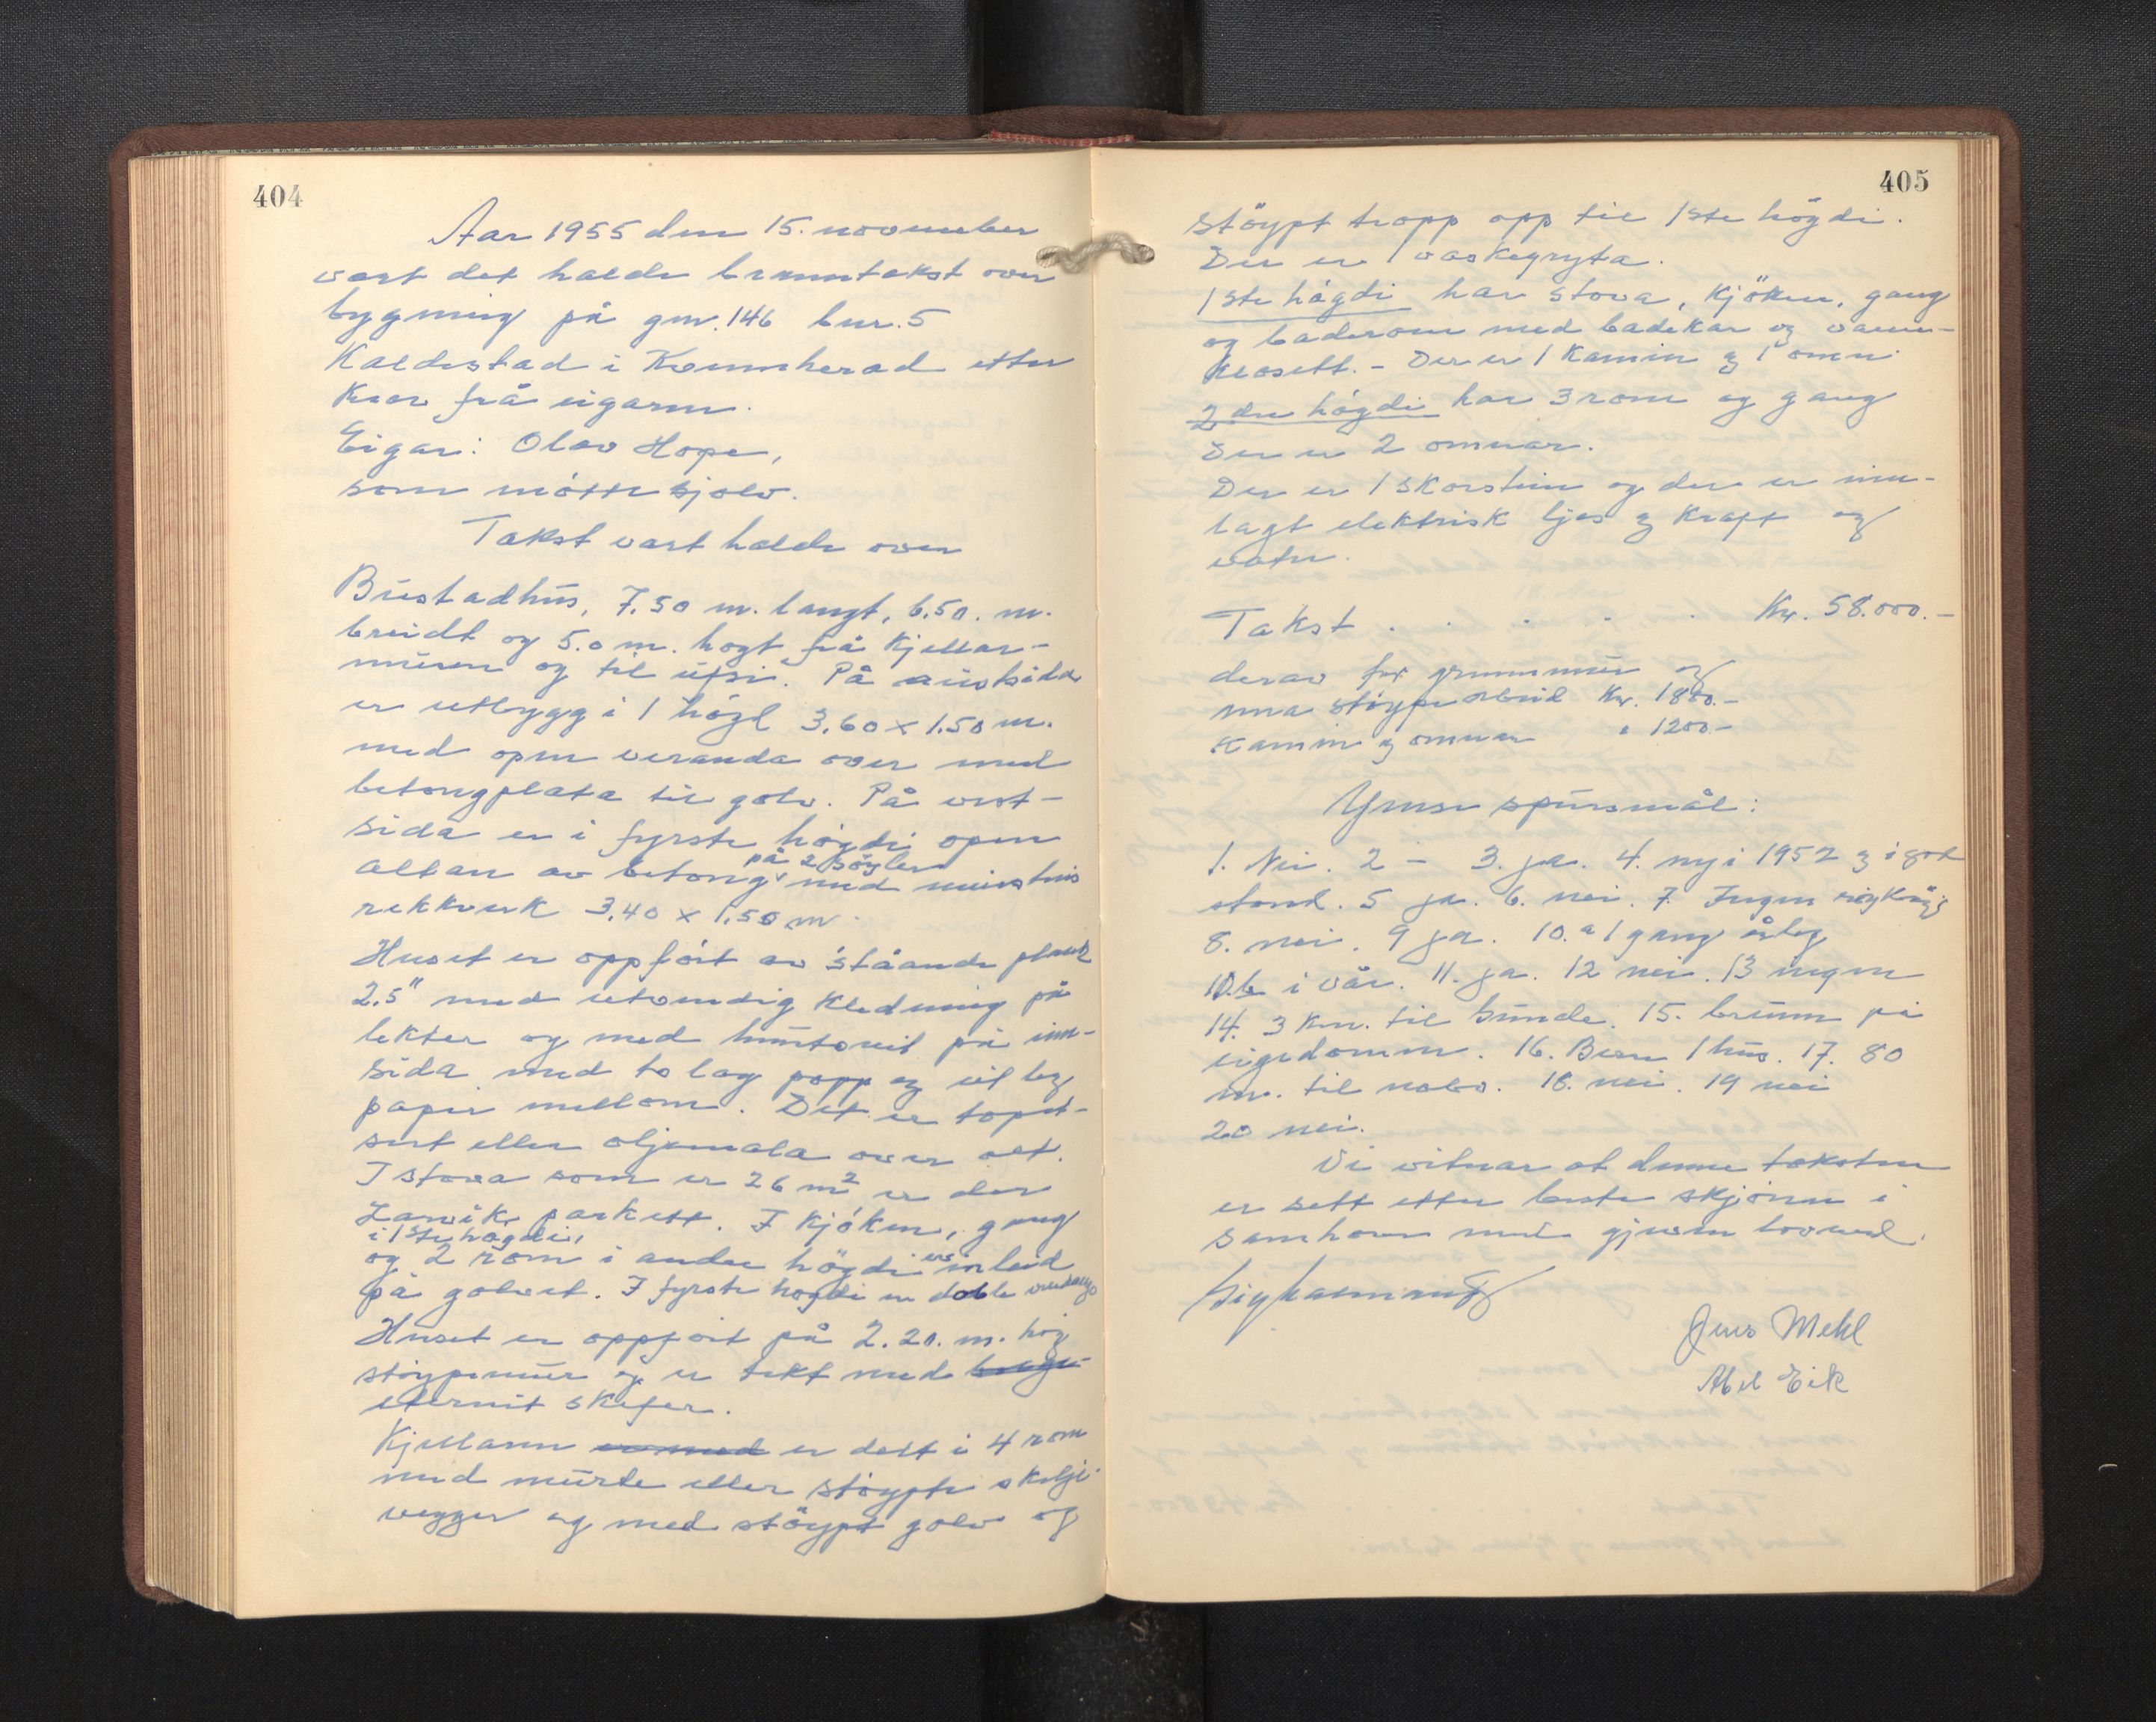 404
Aar 1955 den 15. november
vart det halde branntakst over
bygning på gnr. 146 bnr. 5
Kaldestad i Kvinnherad etter
krav frå eigaren.
Eigar: Olav Hope,
som møtte sjølv.
Takst vart halde over
Bustadhus, 7.50 m. langt, 6.50. m.
breidt og 5.0 m. høgt frå kjellar-
muren og til ufsi. På austsida
er utbygg i 1 høgd 3.60 x 1.50 m.
med open veranda over med
betongplata til golv. På vest-
sida er i fyrste høgdi open
på 2 søyler
altan av betong med
rekkverk 3.40 x 1.50 m
Huset er oppført av ståande plank
2.5" med utvendig kledning på
lekter og med huntonit på inn-
sida med to lag papp og
papir mellom. Det er tapet-
sert eller oljemala over alt.
I stova som er 26 m² er der
parkett. I kjøken, gang
i 1ste høgdi,
og 2 rom i andre høgdi er
på golvet. I fyrste høgdi er doble
Huset er oppført på 2.20. m. høg
støypemur og er tekt med
eternit skifer.
Kjellaren er med er delt i 4 rom
med murte eller støypte skilje-
vegger og med støypt golv og
405
støypt tropp opp til 1ste høgdi.
Der er 1 vaskegryta.
1ste høgdi har stova, kjøken, gang
og baderom med badekar og vann-
klosett. - Der er 1 kamin og 1 omn
2dre høgdi har 3 rom og gang
Der er 2 omnar.
Der er 1 skorstein og der er inn-
lagt elektrisk ljos og kraft og
vatn.
Takst . . . . . Kr. 58.000.-
derav for grunnmur og
anna støypearbeid Kr. 1800.-
Kamin og omnar " 1200.-
Ymse spursmål:
1. Nei. 2 - 3. ja. 4. ny i 1952 og i god
stand. 5 ja. 6. nei. 7. Ingen
8. nei. 9 ja. 10.a 1 gang årleg
10.b i vår. 11. ja. 12 nei. 13 ingen
14. 3 km. til Sunde. 15. brunn på
eigedomen. 16. Bere 1 hus. 17. 80
m. til nabo. 18. nei. 19 nei
20 nei.
Vi vitnar at denne taksten
er sett etter beste skjønn i
samhøve med gjeven lovnad.
Jens Mehl
Abel Eik